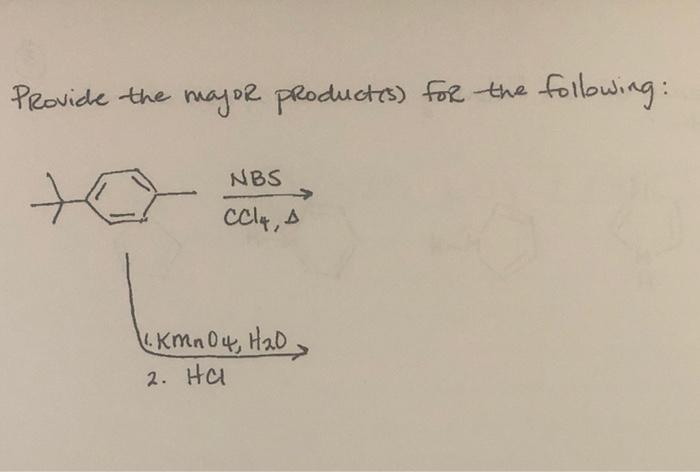 Provide the major product(s) for the following:
NBS
CCl4, Δ
1. KMnO4, H2O
2. HCl